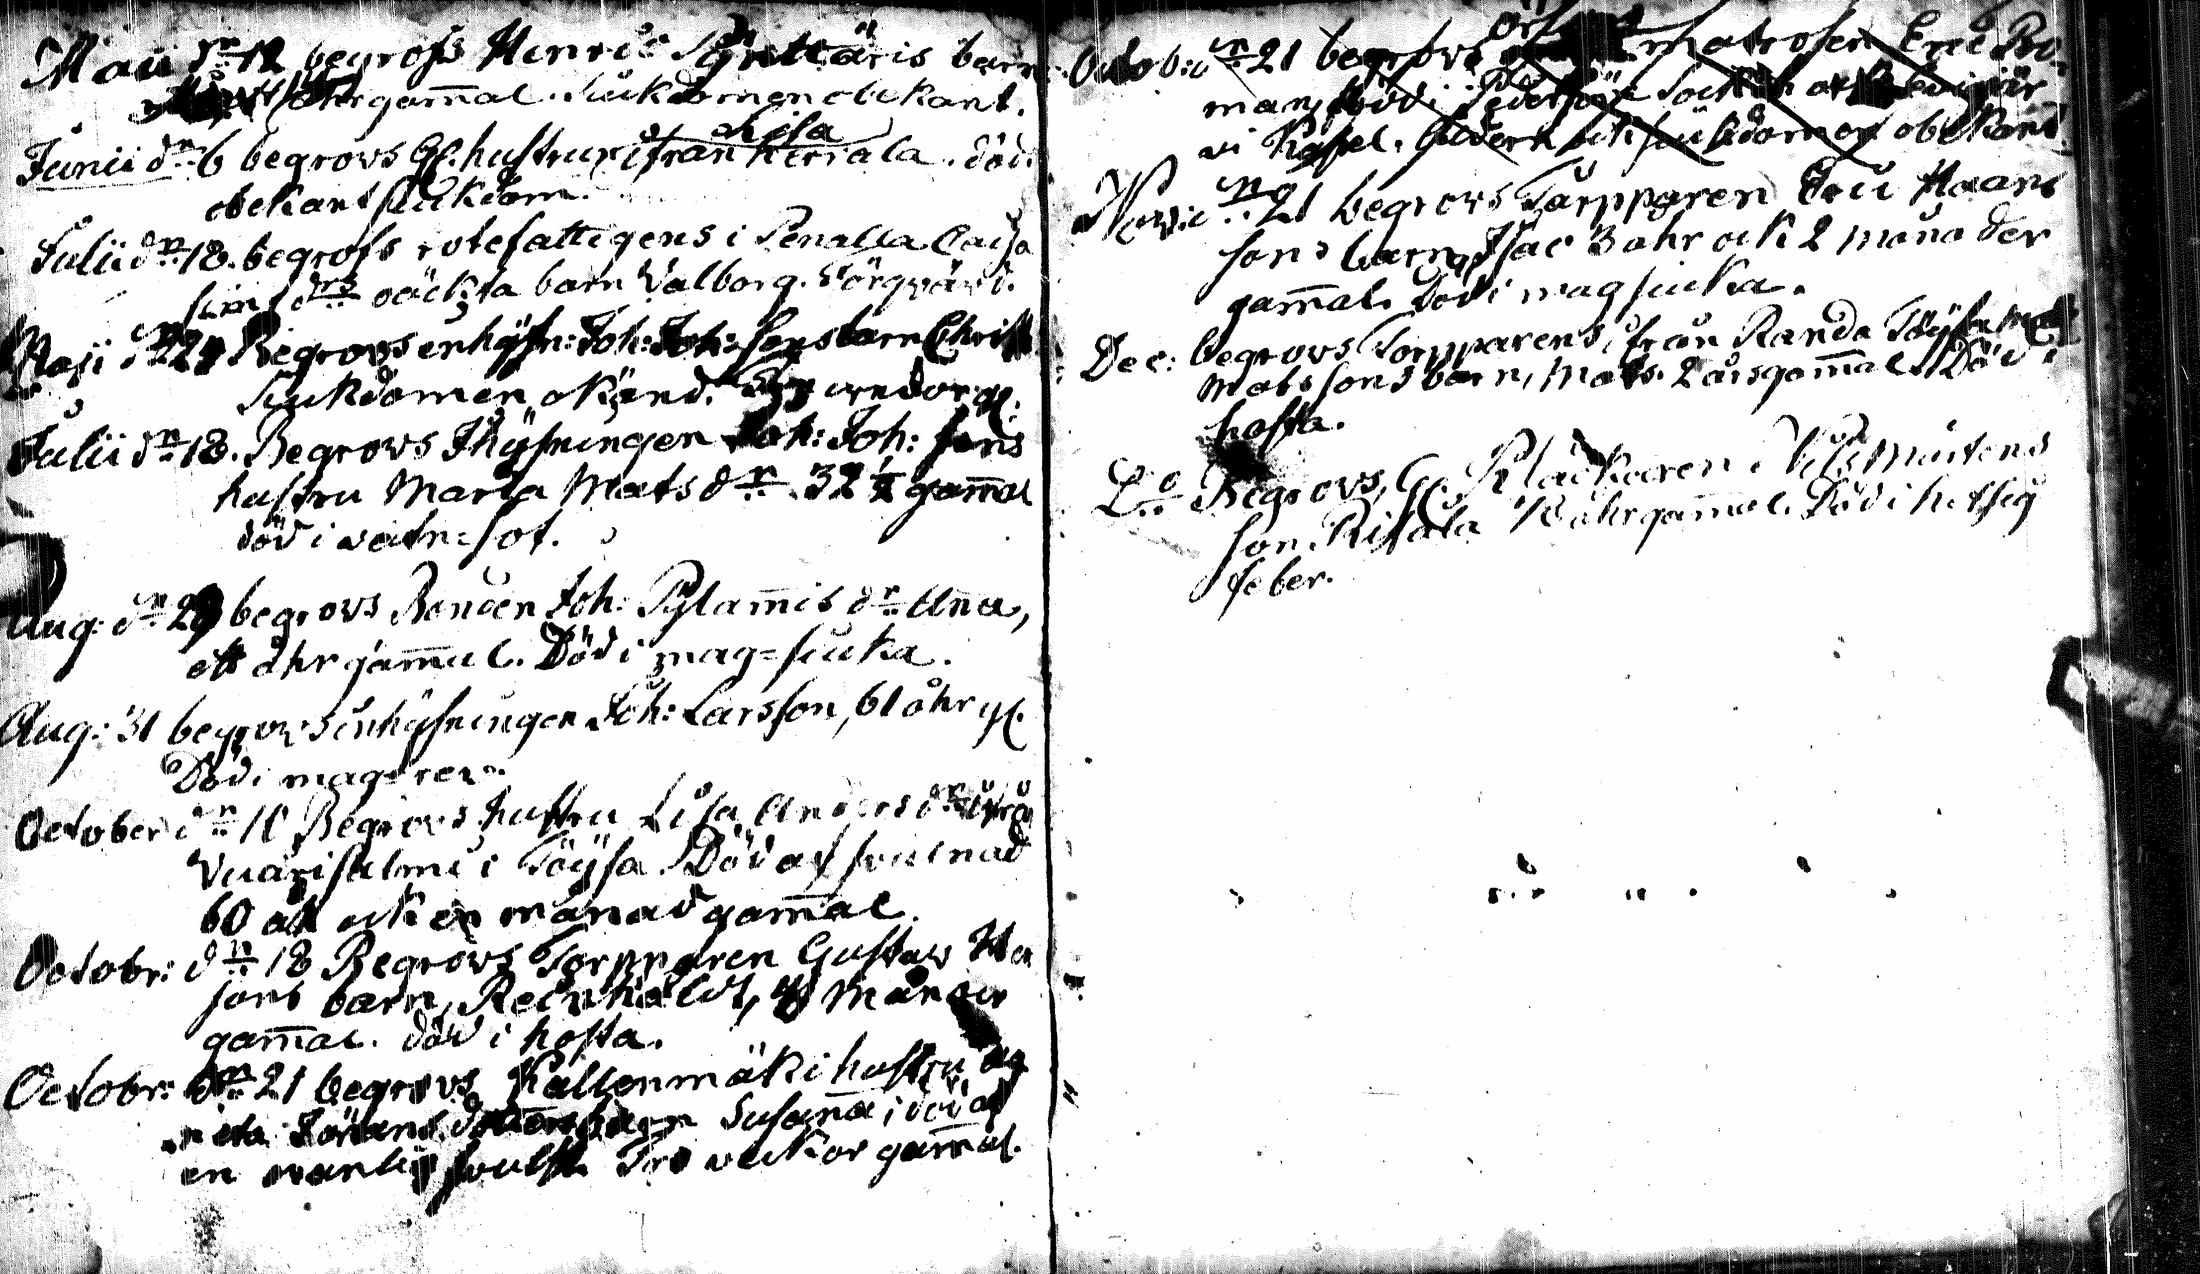 Maii dn 12 begrofs Henric barn
åhr gam̄al. Siukdomen obekant.
Junii dn 6 begrovs gl. hustrun Lisa ifrån Kerrala. död.
obekant siukdom.
Julii dn 18. begrofs rotefattigens i Penalla Caisa
Sims drs oäckta barn Valborg.
Maji dn 24 Begrovs inhysn: Joh: Joh: sons barn Christ
Siukdomen okänd.
Julii dn 18. Begrovs Ihysningen Joh: Joh: sons
hustru Maria Mats dr. 32 ½ gam̄al
död i vatn=sot.
Aug: dn 29 begrovs Bonden Joh: Pylam̄is dr An̄a,
ett åhr gam̄al. Död i mag=siuka.
Aug: 31 begrovs inhysningen Joh: Larsson, 61 åhr gl.
Död i mag=rev.
October dn 10 Begrovs hustru Lisa Anders dr ifrån
Vuarisalmi i Töysa. Död af svulnad
60 åhr ock en månad gam̄al.
Octobr: dn 18 Begrovs Torpparen Gustaw
sons barn, Reinholdt, 8 månader
gam̄al. död i hosta.
Octobr: dn 21 begrovs Kallenmäki hustru
Susan̄a, död af
en vanlig svulst Tre veckor gam̄al.
Octob: dn 21 begrovs matrosen Eric
man, död i socken
i Kapel. Åldern ock siukdomen obekant.
Nov: dn 21 begrovs Torpparen Eric Haans
sons barn, Isac 3 åhr ock 2 månader
gam̄al. Död i magsiuka.
Dec: begrovs Torpparens, ifrån Randa Töysa
Matssons barn, Mats. 2 års gam̄al. Död i
hosta.
Do Begrovs, gl. Klåckaren Nils Mårtens
son Risala åhr gam̄al. Död i hetsig
feber.